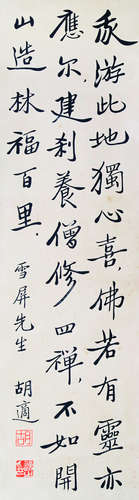 我游此地獨心喜，佛若有靈亦
應尔，建刹養僧修四禪，不如開
山造林福百里．
雪屏先生 胡適
胡